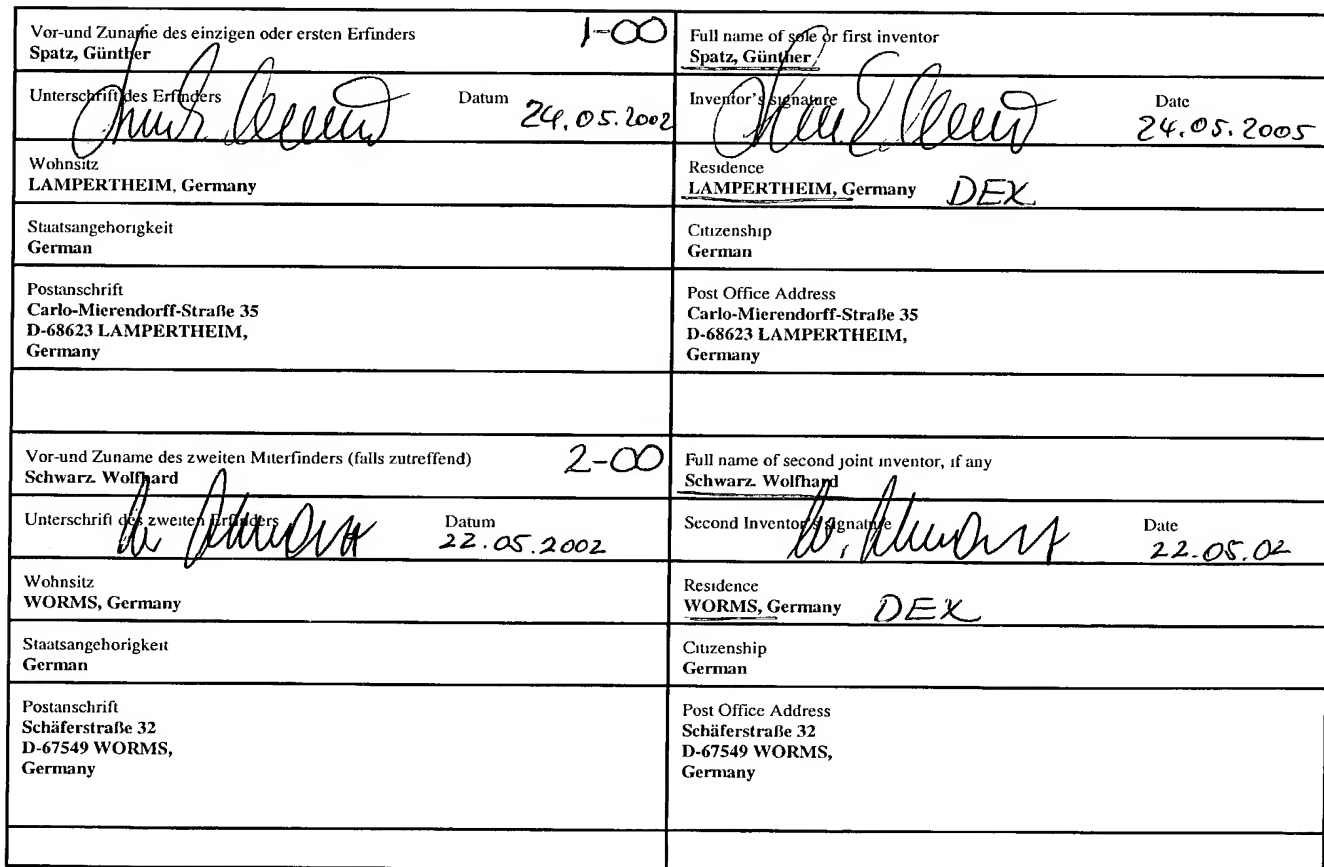 Vor-und Zuname des einzigen oder ersten Erfinders 1-00
Spatz, Günther
Unterschrift des Erfinders Datum
24.05.2002
Wohnsitz
LAMPERTHEIM, Germany
Staatsangehorigkeit
German
Postanschrift
Carlo-Mierendorff-Straße 35
D-68623 LAMPERTHEIM,
Germany
Vor-und Zuname des zweiten Miterfinders (falls zutreffend) 2-00
Schwarz. Wolfhard
Unterschrift des zweiten Erfinders Datum
22.05.2002
Wohnsitz
WORMS, Germany
Staatsangehorigkeit
German
Postanschrift
Schäferstraße 32
D-67549 WORMS,
Germany
Full name of sole or first inventor
Spatz, Günther
Inventor's signature Date
24.05.2005
Residence
LAMPERTHEIM, Germany DEX
Citizenship
German
Post Office Address
Carlo-Mierendorff-Straße 35
D-68623 LAMPERTHEIM,
Germany
Full name of second joint inventor, if any
Schwarz. Wolfhard
Second Inventor's signature Date
22.05.02
Residence
WORMS, Germany DEX
Citizenship
German
Post Office Address
Schäferstraße 32
D-67549 WORMS,
Germany